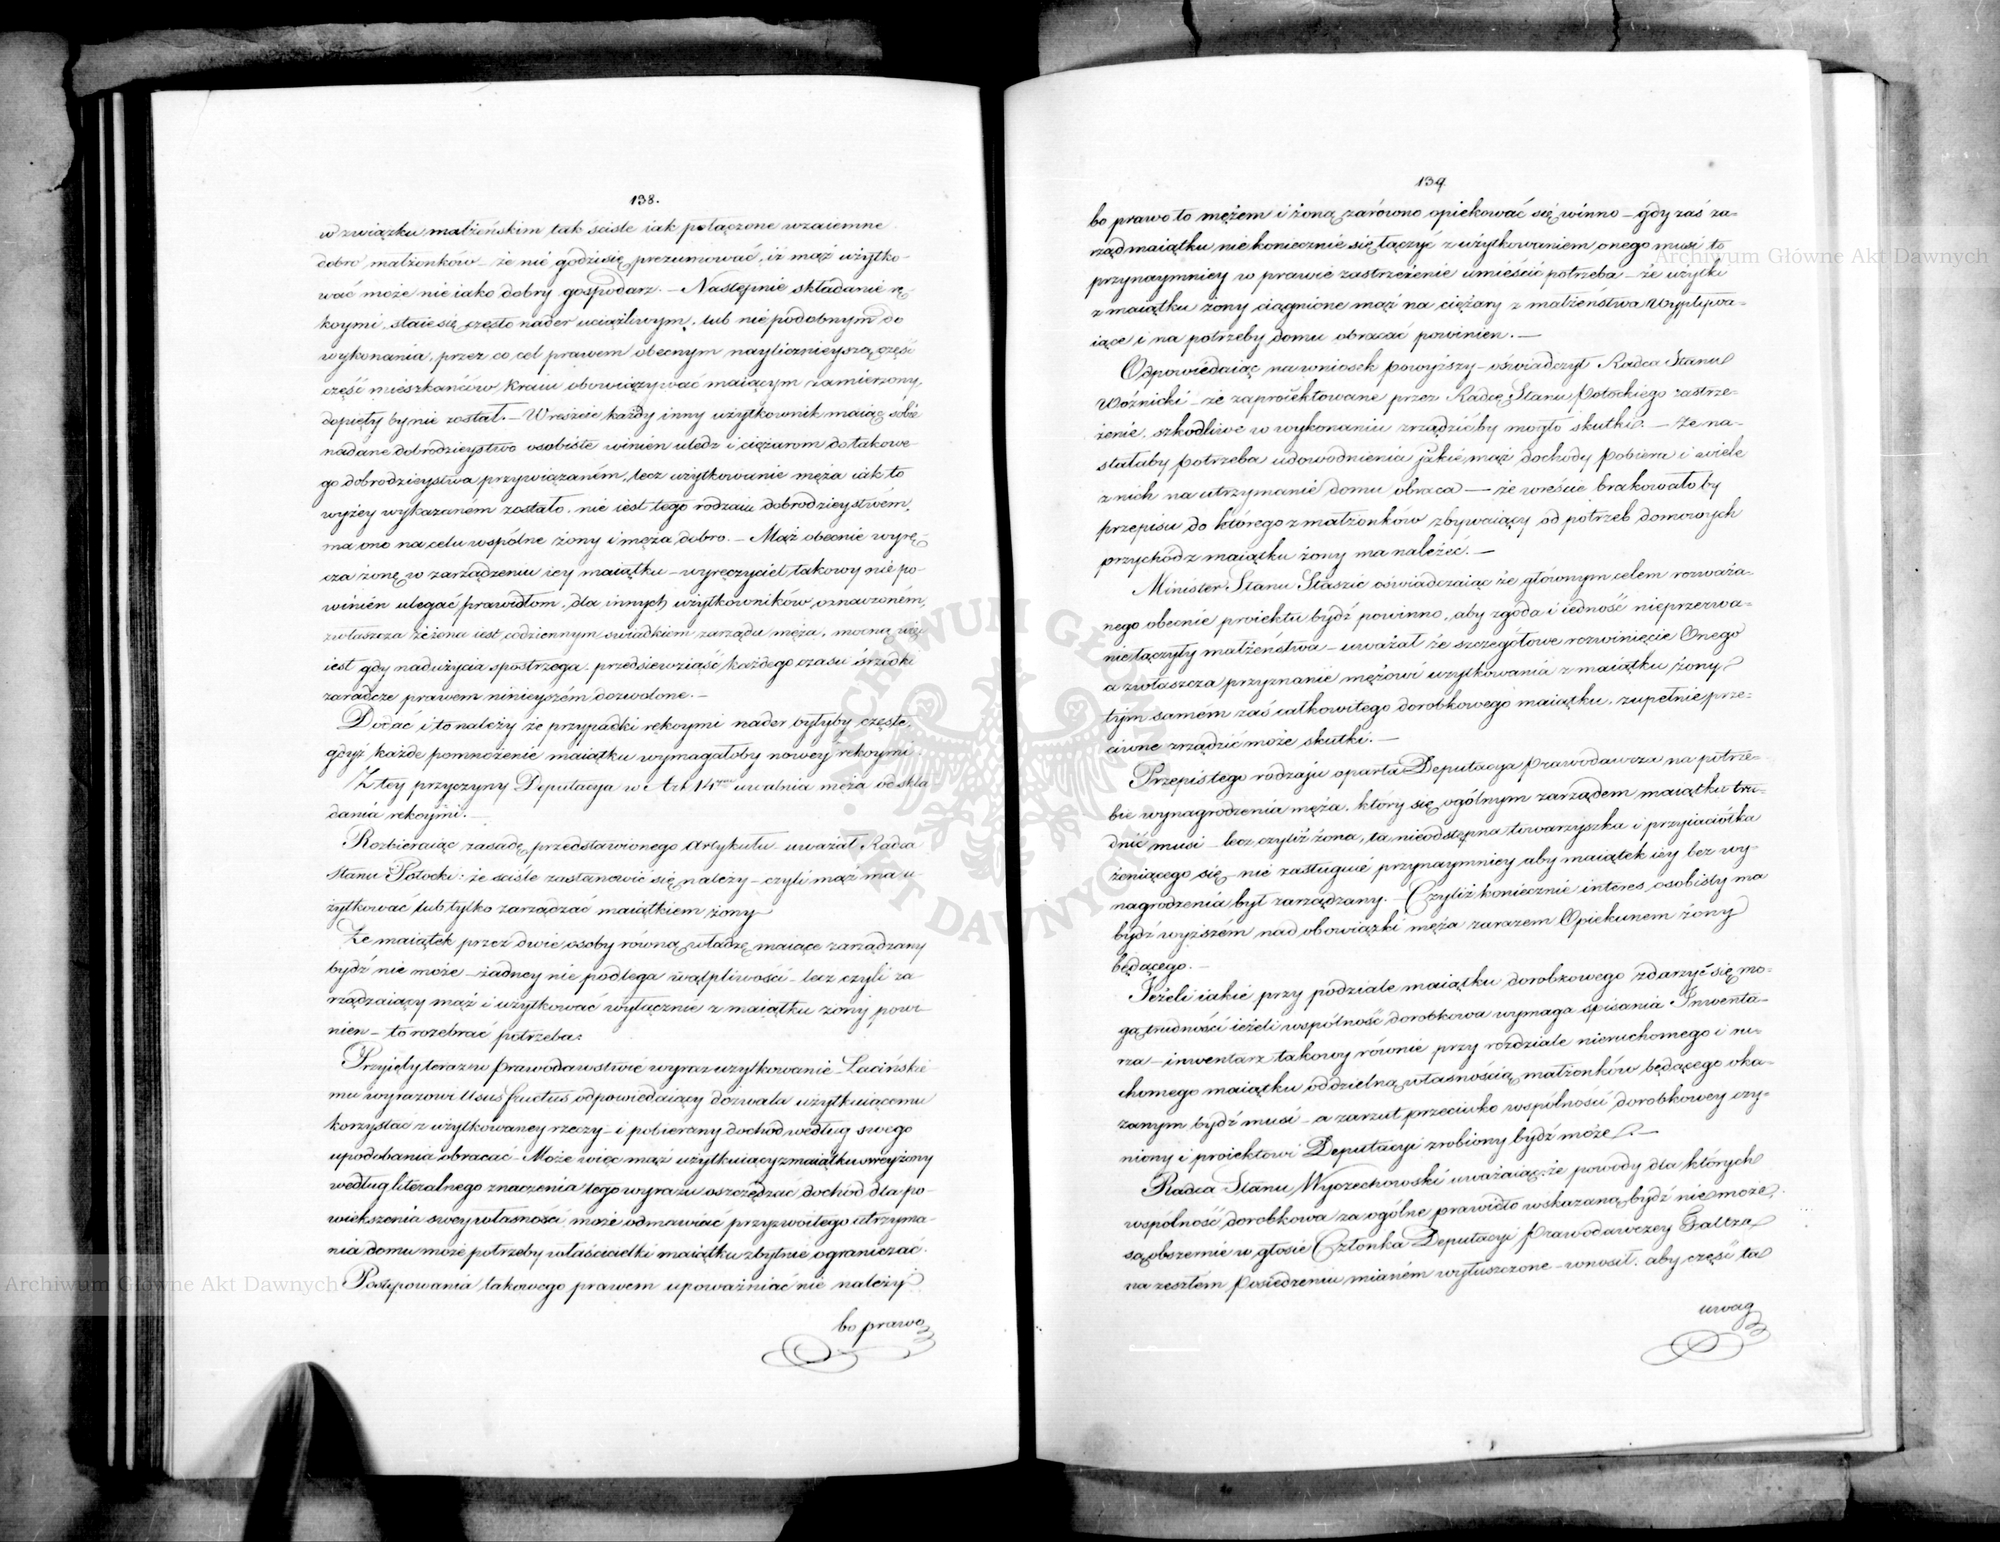 138.
w związku małżeńskim tak ściśle iak połączone wzaiemne
dobro małżonków – że nie godzi się prezumować, iż mąż użytko-
wać może nie iako dobry gospodarz. – Następnie składanie rę-
koymi staie się często nader uciążliwym, lub nie podobnym do
wykonania, przez co cel prawem obecnym nayliczniejszą część
część mieszkańców kraiu obowiązywać maiącym zamierzony,
dopięty by nie został. – Wreszcie każdy inny użytkownik maiąc sobie
nadane dobrodzieystwo osobiste winien uledz i ciężarom do takowe-
go dobrodzieystwa przywiązaném, lecz użytkowanie męża iak to
wyżey wykazaném zostało, nie iest tego rodzaiu dobrodzieystwém,
ma ono na celu wspólne żony i męża dobro. – Mąż obecnie wyrę-
cza żonę w zarządzeniu iey maiątku – wyręczyciel takowy nie po-
winien ulegać prawidłom, dla innych użytkowników oznaczoném,
zwłaszcza że żona iest codziennym świadkiem zarządu męża, mocną więc
iest gdy nadużycia spostrzega, przedsięwziąść każdego czasu śrzodki
zaradcze prawem ninieyszém dozwolone. –
Dodać i to należy że przypadki rękoymi nader byłyby częste,
gdyż każde pomnożenie maiątku wymagałoby nowey rękoymi
Z tey przyczyny Deputacya w Art 14ym uwalnia męża od skła
dania rękoymi. –
Rozbieraiąc zasadę przedstawionego Artykułu – uważał Radca
Stanu Potocki: że ściśle zastanowić się należy – czyli mąż ma u-
żytkować lub tylko zarządzać maiątkiem żony
Że maiątek przez dwie osoby równą władzę maiące zarządzany
bydź nie może – żadney nie podlega wątpliwości – lecz czyli za-
rządzaiący mąż i użytkować wyłącznie z maiątku żony powi-
nien – to rozebrać potrzeba:
Przyięty teraz w prawodawstwie wyraz użytkowanie – Łacińskie-
mu wyrazowi Usus fructus odpowiedaiący dozwala użytkuiącemu
korzystać z użytkowaney rzeczy – i pobierany dochód według swego
upodobania obracać – Może więc mąż użytkuiący z maiątku swey żony
według literalnego znaczenia tego wyrazu oszczędzać dochód dla po-
większenia swey własności może odmawiać przyzwoitego utrzyma-
nia domu może potrzeby właścicielki maiątku zbytnie ograniczać.
Postępowania takowego prawem upoważniać nie należy
bo prawo
139
bo prawo to mężem i żoną zarówno opiekować się winno – gdy zaś za-
rząd maiątku nie koniecznie się łączyć z użytkowaniem onego musi to
przynaymniey w prawie zastrzeżenie umieścić potrzeba – że użytki
z maiątku żony ciągnione mąż na ciężary z małżeństwa wypływa-
iące i na potrzeby domu obracać powinien. –
Odpowiedaiąc na wniosek powyższy – oświadczył Radca Stanu
Woźnicki – że zaproiektowane przez Radcę Stanu Potockiego zastrze-
żenie, szkodliwe w wykonaniu zrządzić by mogło skutki. – Że na-
stałaby potrzeba udowodnienia jakie mąż dochody pobiera i wiele
z nich na utrzymanie domu obraca – że wreście brakowałoby
przepisu do którego z małżonków zbywaiący od potrzeb domowych
przychód z maiątku żony ma należeć. –
Minister Stanu Staszic oświadczaiąc że głównym celem rozważa-
nego obecnie proiektu bydź powinno, aby zgoda i iedność nieprzerwa-
nie łączyły małżeństwa – uważał że szczegółowe rozwinięcie Onego
a zwłaszcza przyznanie mężowi użytkowania z maiątku żony
tym samém zaś całkowitego dorobkowego maiątku, zupełnie prze-
ciwne zrządzić może skutki. –
Przepis tego rodzaju oparła Deputacya Prawodawcza na potrze-
bie wynagrodzenia męża, który się ogólnym zarządem maiątku tru-
dnić musi – lecz czyliż żona, ta nieodstępna towarzyszka i przyiaciółka
żeniącego się – nie zasługuie przynaymniey aby maiątek iéy bez wy-
nagrodzenia był zarządzany. – Czyliż koniecznie interes osobisty ma
bydź wyższém nad obowiązki męża zarazem Opiekunem żony
będącego. –
Jeżeli iakie przy podziale maiątku dorobkowego zdarzyć się mo-
gą trudności ieżeli wspólność dorobkowa wymaga spisania Inwenta-
rza – inwentarz takowy równie przy rozdziale nieruchomego i ru-
chomego maiątku oddzielną własnością małżonków będącego oka-
zanym bydź musi – a zarzut przeciwko wspólności dorobkowey czy-
niony i proiektowi Deputacyi zrobiony bydź może. –
Radca Stanu Wyczechowski uważaiąc: że powody dla których
wspólność dorobkowa za ogólne prawidło wskazaną bydź nie może,
są obszernie w głosie Członka Deputacyi Prawodawczey Faltza
na zeszłém Posiedzeniu mianém wyłuszczone – wnosił, aby część ta
uwag
Archiwum Główne Akt Dawnych
Archiwum Główne Akt Dawnych
Archiwum Główne Akt Dawnych
ARCHIWUM GŁÓWNE AKT DAWNYCH